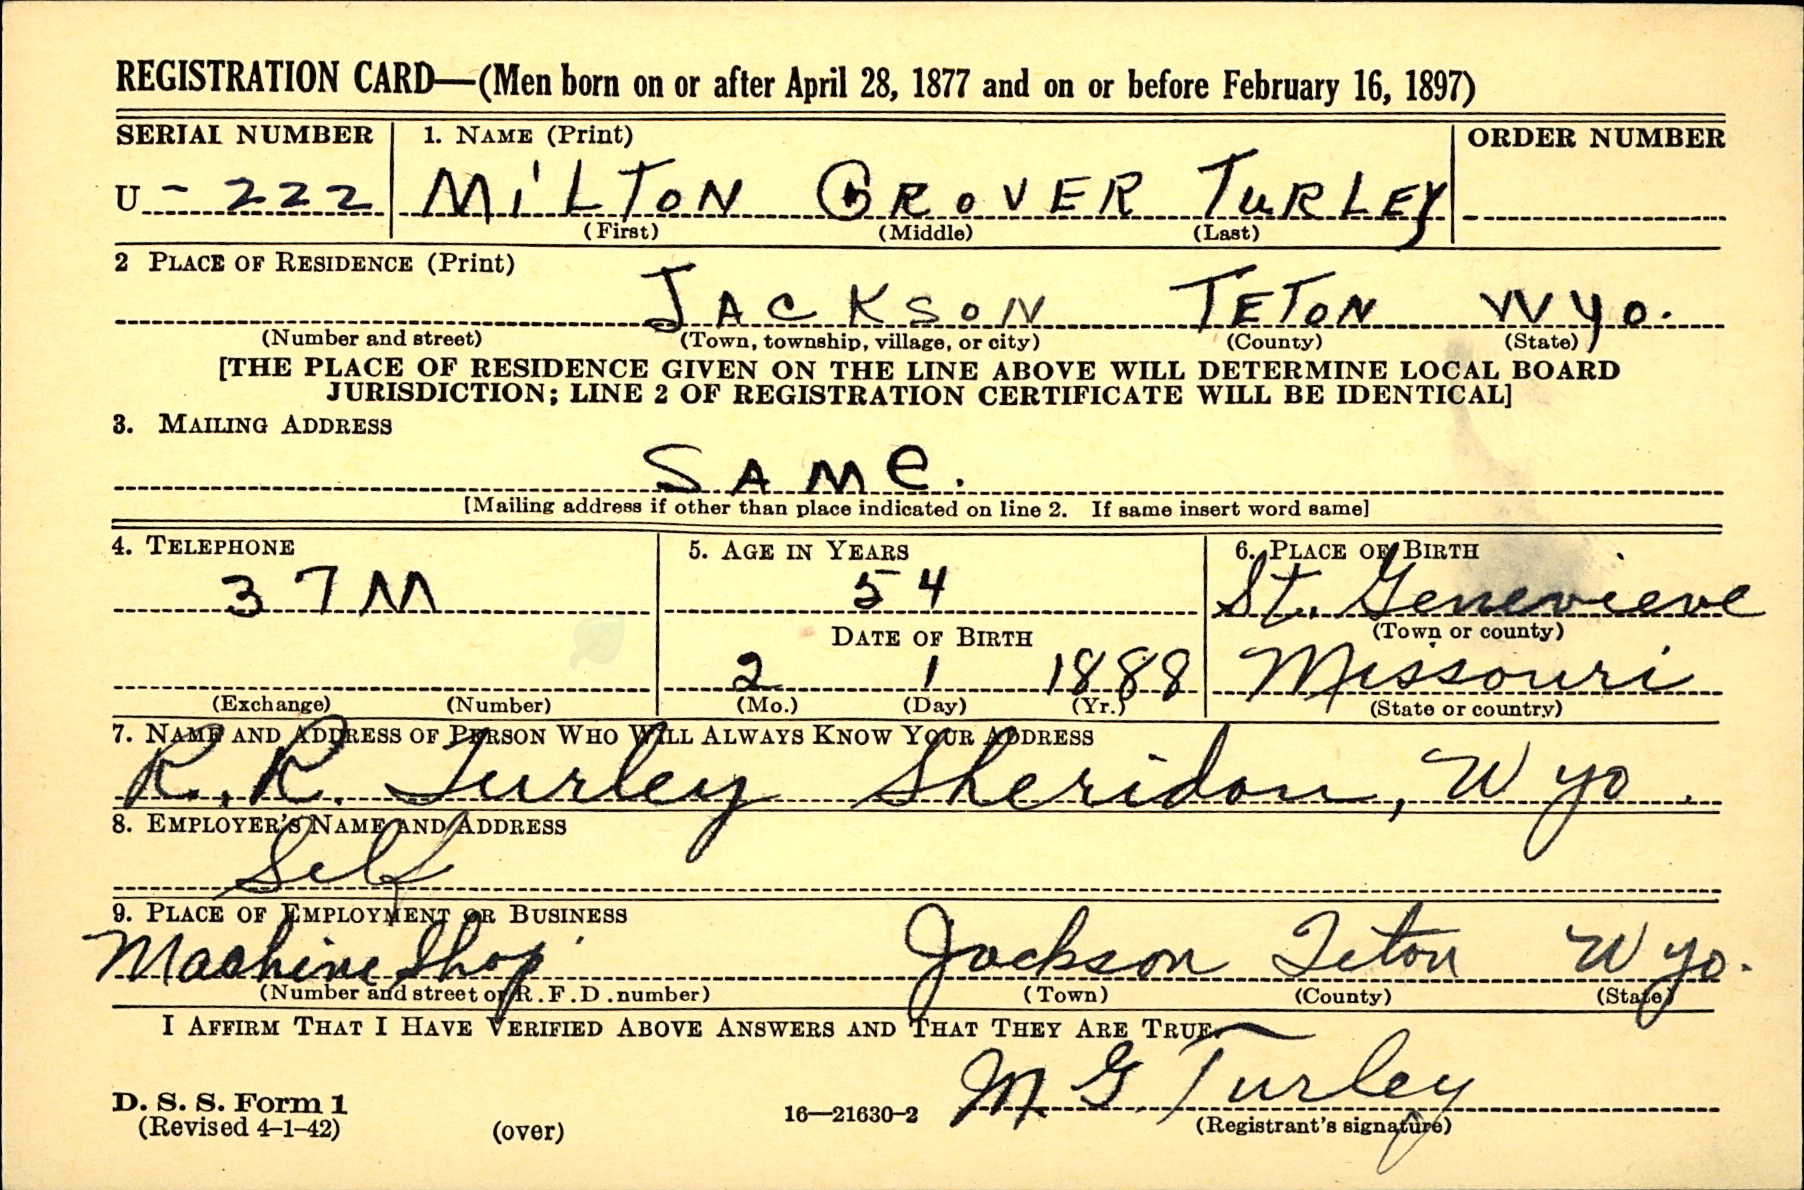 REGISTRATION CARD—(Men born on or after April 28, 1877 and on or before February 16, 1897)
SERIAL NUMBER 1. NAME (Print) ORDER NUMBER
U - 222 MILTON GROVER TURLEY
(First) (Middle) (Last)
2 PLACE OF RESIDENCE (Print)
JACKSON TETON WYO.
(Number and street) (Town, township, village, or city) (County) (State)
[THE PLACE OF RESIDENCE GIVEN ON THE LINE ABOVE WILL DETERMINE LOCAL BOARD
JURISDICTION; LINE 2 OF REGISTRATION CERTIFICATE WILL BE IDENTICAL]
3. MAILING ADDRESS
SAME.
[Mailing address if other than place indicated on line 2. If same insert word same]
4. TELEPHONE 5. AGE IN YEARS 6. PLACE OF BIRTH
37M 54 St. Genevieve
DATE OF BIRTH (Town or county)
2 1 1888 Missouri
(Exchange) (Number) (Mo.) (Day) (Yr.) (State or country)
7. NAME AND ADDRESS OF PERSON WHO WILL ALWAYS KNOW YOUR ADDRESS
R. R. Turley Sheridan, Wyo.
8. EMPLOYER'S NAME AND ADDRESS
Self
9. PLACE OF EMPLOYMENT OR BUSINESS
Machine Shop Jackson Teton Wyo.
(Number and street or R.F.D. number) (Town) (County) (State)
I AFFIRM THAT I HAVE VERIFIED ABOVE ANSWERS AND THAT THEY ARE TRUE.
M G Turley
D. S. S. Form 1
(Revised 4-1-42) (over) 16—21630-2 (Registrant's signature)